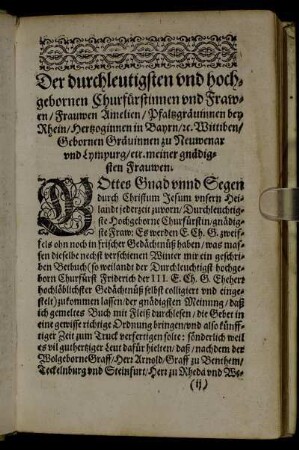 Der durchleutigsten vnd hoch-
gebornen Churfürstinnen vnd Fraw-
en/ Frauwen Amelien/ Pfaltzgräuinnen bey
Rhein/ Hertzoginnen in Bayrn/ꝛc. Wittiben/
Gebornen Gräuinnen zu Neuwenar
vnd Lympurg/ etc. meiner gnädig-
sten Frauwen.
GOttes Gnad vnnd Segen
durch Christum Jesum vnsern Hei-
land jederzeit zuvorn/ Durchleuchtig-
ste Hochgeborne Churfürstin/ gnädig-
ste Fraw: Es werden E. Ch. G. zwei-
fels ohn noch in frischer Gedächtnüß haben/ was mas-
sen dieselbe nechst verschienen Winter mir ein geschri-
ben Betbuch (so weilande der Durchleuchtigst hochge-
born Churfürst Friderich der III. E. Ch. G. Eheherr
hochlöblichster Gedächtnüß selbst colligiert vnd einge-
stelt) zukommen lassen/ der gnädigsten Meinung/ daß
ich gemeltes Buch mit Fleiß durchlesen/ die Gebet in
eine gewisse richtige Ordnung bringen/ vnd also künff-
tiger Zeit zum Truck verfertigen solte: sönderlich weil
es vil guthertziger Leut dafür hielten/ daß/ nachdem der
Wolgeborne Graff/ Herr Arnold/ Graff zu Benthem/
Teckelnburg vnd Steinfurt/ Herr zu Rheda vnd We-
(ij)